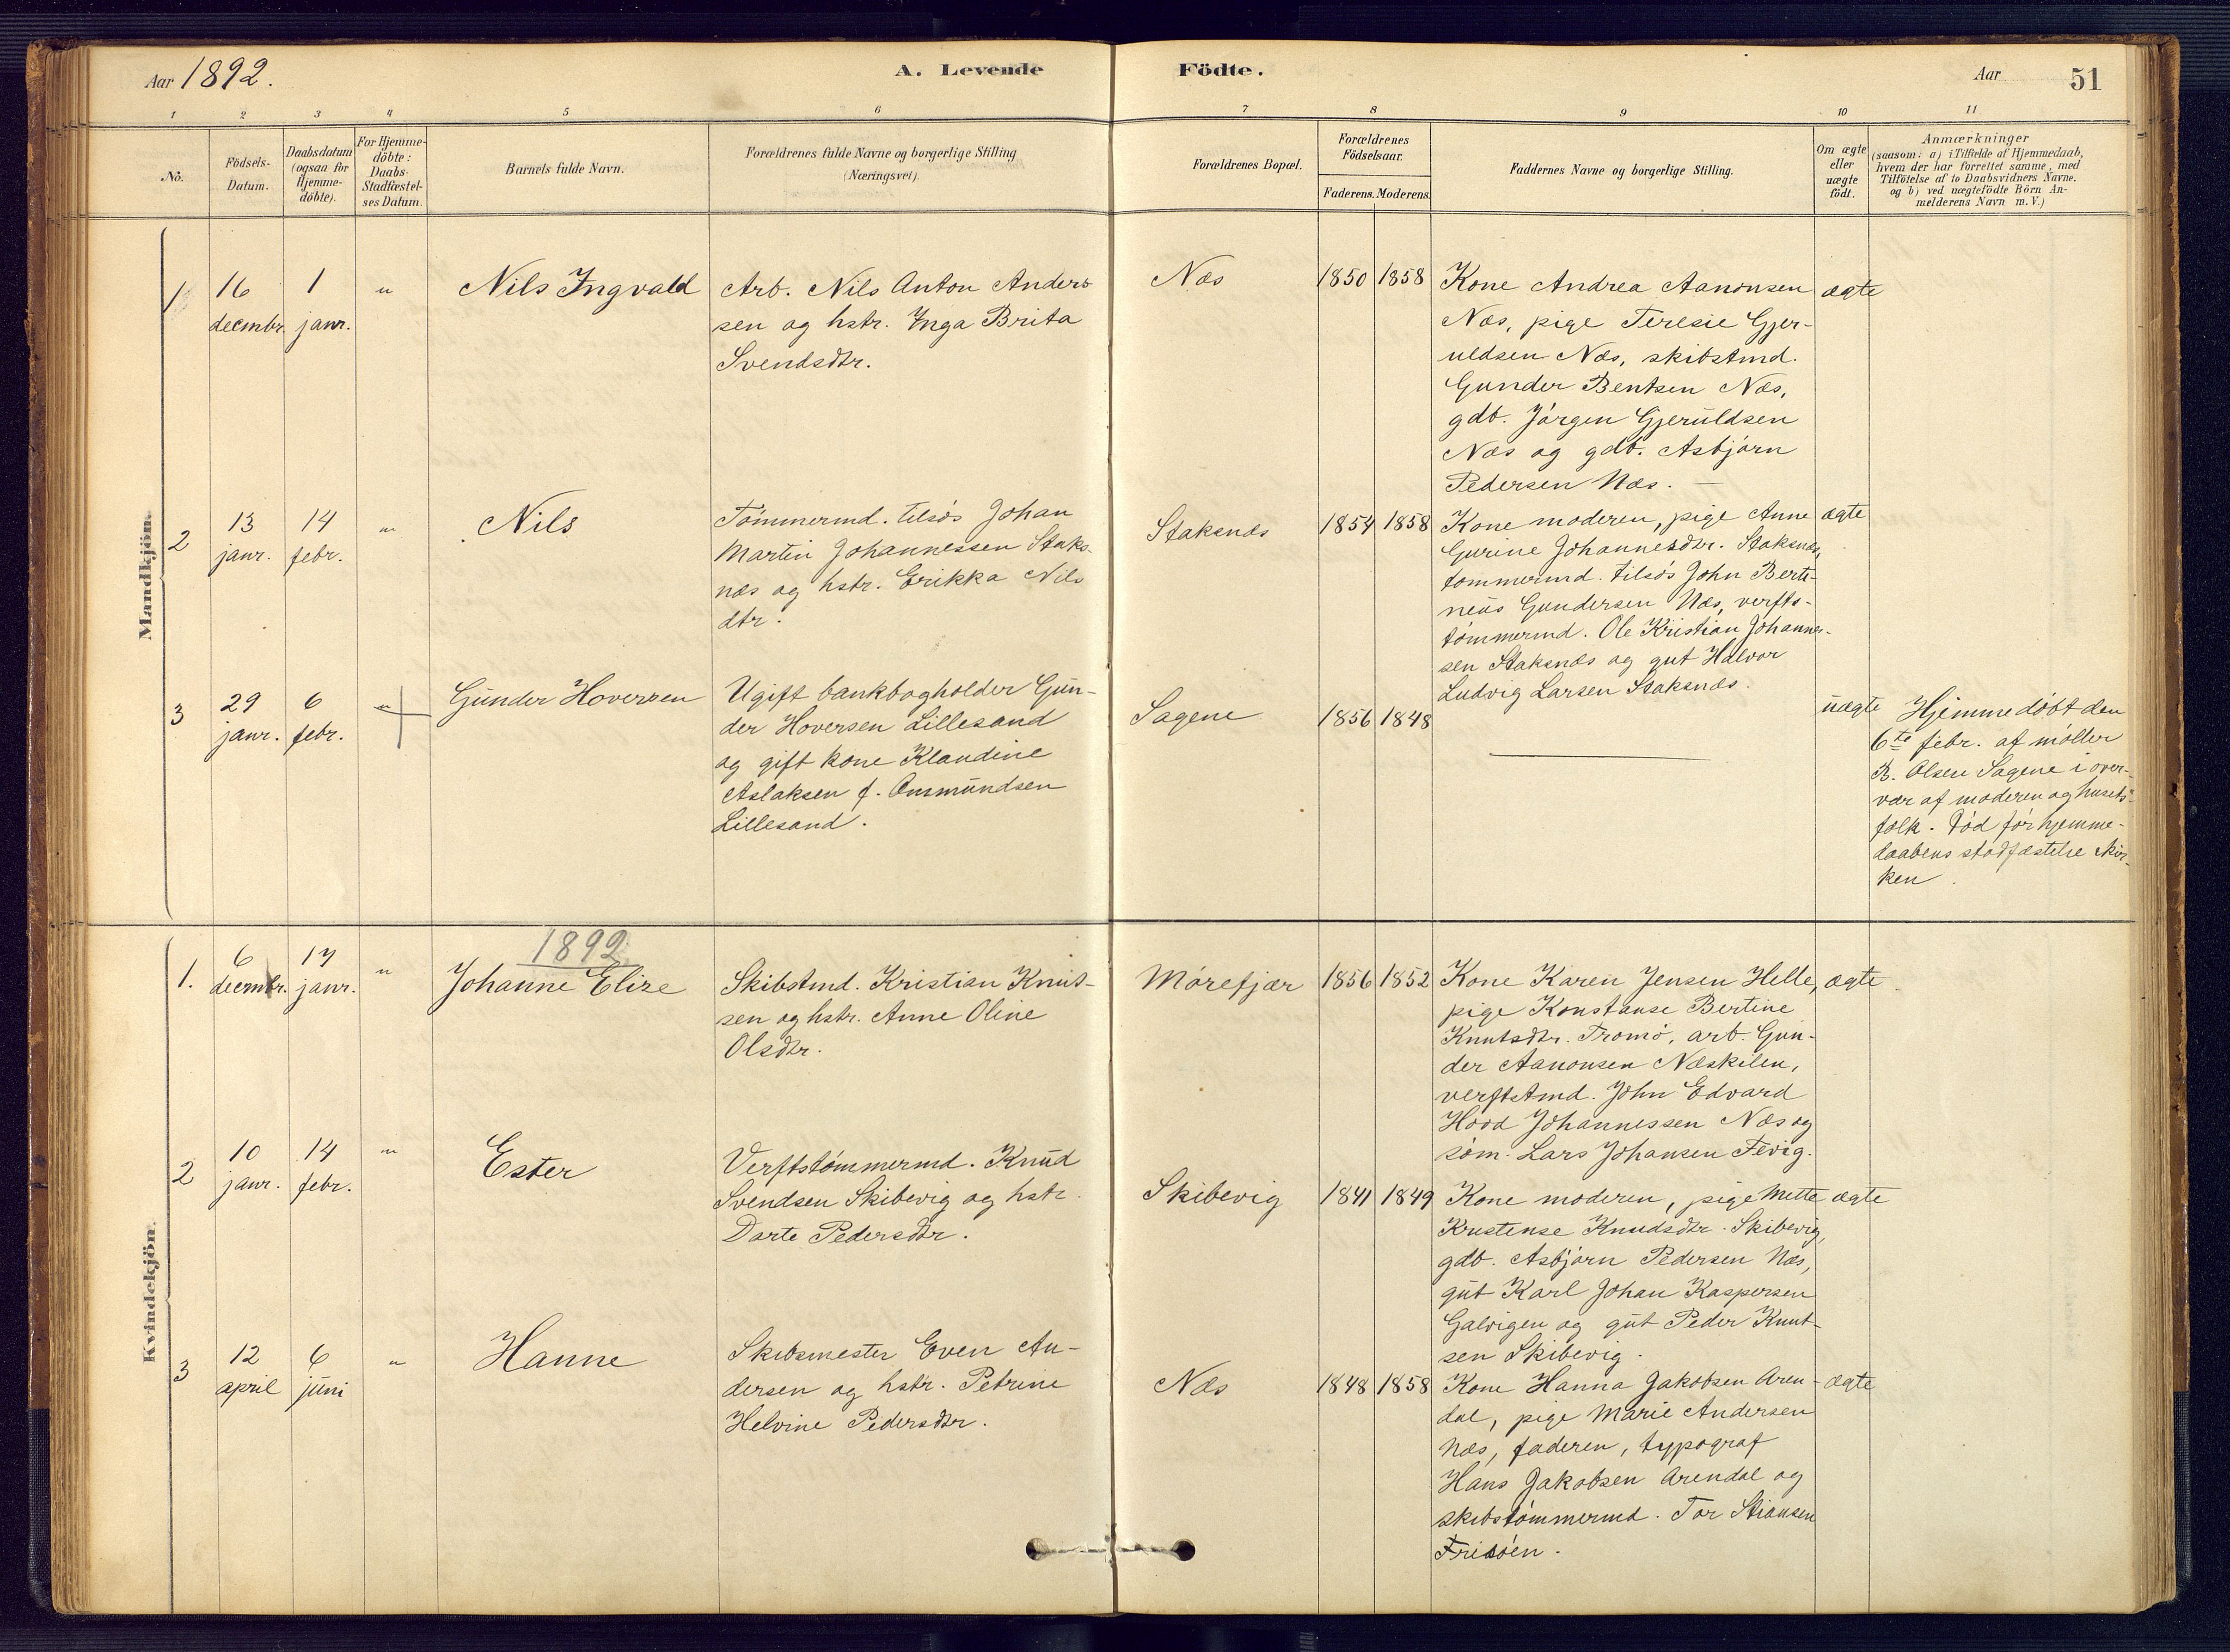 Aar 1892.
A. Levende
Födte.
Aar
51
1 2 3 4 5 6 7 8 9 10 11
No.
Födsels-
Datum.
Daabsdatum
(ogsaa for
Hjemme-
döbte).
For Hjemme-
döbte:
Daabs-
Stadfæstel-
ses Datum.
Barnets fulde Navn.
Forældrenes fulde Navne og borgerlige Stilling
(Næringsvei).
Forældrenes Bopæl.
Forældrenes
Födselsaar.
Faderens. Moderens.
Faddernes Navne og borgerlige Stilling.
Om ægte
eller
uægte
födt.
Anmærkninger
(saasom: a) i Tilfælde af Hjemmedaab,
hvem der har forrettet samme, med
Tilföielse af to Daabsvidners Navne.
og b) ved uægtefödte Börn An-
melderens Navn m. V.)
Mandkjön.
1
16
decmbr.
1
janr.
"
Nils Ingvald
Arb. Nils Anton Anders
sen og hstr. Inga Brita
Svendsdtr.
Næs
1850
1858
Kone Andrea Aanonsen
Næs, pige Teresie Gjer-
uldsen Næs, skibstmd.
Gunder Bentsen Næs,
gdb. Jörgen Gjeruldsen
Næs og gdb. Asbjörn
Pedersen Næs. —
ægte
2
13
janr.
14
febr.
"
Nils
Tömmermd. tilsös Johan
Martin Johannessen Staks-
næs og hstr. Erikka Nils
dtr.
Staksnæs
1854
1858
Kone moderen, pige Anne
Gurine Johannesdtr. Staksnæs,
tømmermd. tilsös John Berti-
neus Gundersen Næs, verfts-
tömmermd. Ole Kristian Johannes-
sen Staksnæs og gut Halvor
Ludvig Larsen Staksnæs.
ægte
3
29
janr.
6
febr.
"
Gunder Hoversen
Ugift bankbogholder Gun-
der Hoversen Lillesand
og gift kone Klaudine
Aslaksen f. Omsmundsen
Lillesand.
Sagene
1856
1848
uægte
Hjemmedöbt den
6te febr. af möller
B. Olsen Sagene i over-
vær af moderen og husets
folk. Död för hjemme-
daabens stadfæstelse i kir-
ken.
Kvindekjön.
1892
1.
6
decmbr.
17
janr.
"
Johanne Elise
Skibstmd. Kristian Knut-
sen og hstr. Anne Oline
Olsdtr.
Mörefjær
1856
1852
Kone Karen Jensen Helle,
pige Konstanse Bertine
Knutsdtr. Tromö, arb. Gun-
der Aanonsen Næskilen,
verftstmd. John Edvard
Hood Johannessen Næs og
söm. Lars Johansen Fevig.
ægte
2
10
janr.
14
febr.
"
Ester
Verftstömmermd. Knud
Svendsen Skibevig og hstr.
Dorte Pedersdtr.
Skibevig
1841
1849
Kone moderen, pige Mette
Kristense Knudsdtr. Skibevig,
gdb. Asbjörn Pedersen Næs,
gut Karl Johan Kaspersen
Galvigen og gut Peder Knut-
sen Skibevig.
ægte
3
12
april
6
juni
"
Hanne
Skibsmester Even An-
dersen og hstr. Petrine
Helvine Pedersdtr.
Næs
1848
1858
Kone Hanna Jakobsen Aren-
dal, pige Marie Andersen
Næs, faderen, typograf
Hans Jakobsen Arendal og
skibstömmermd. Tor Stiansen
Frisöen.
ægte